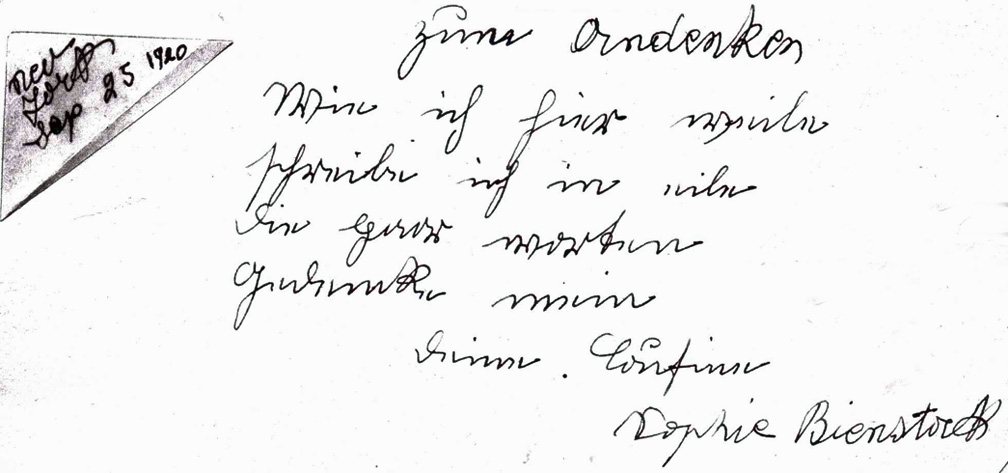 New
York
Sep 25 1920
zum Andenken
Wie ich hier weile
schreibe ich in eile
die paar worten
Gedenke mein
deine. Cousine
Sophie Bienstock